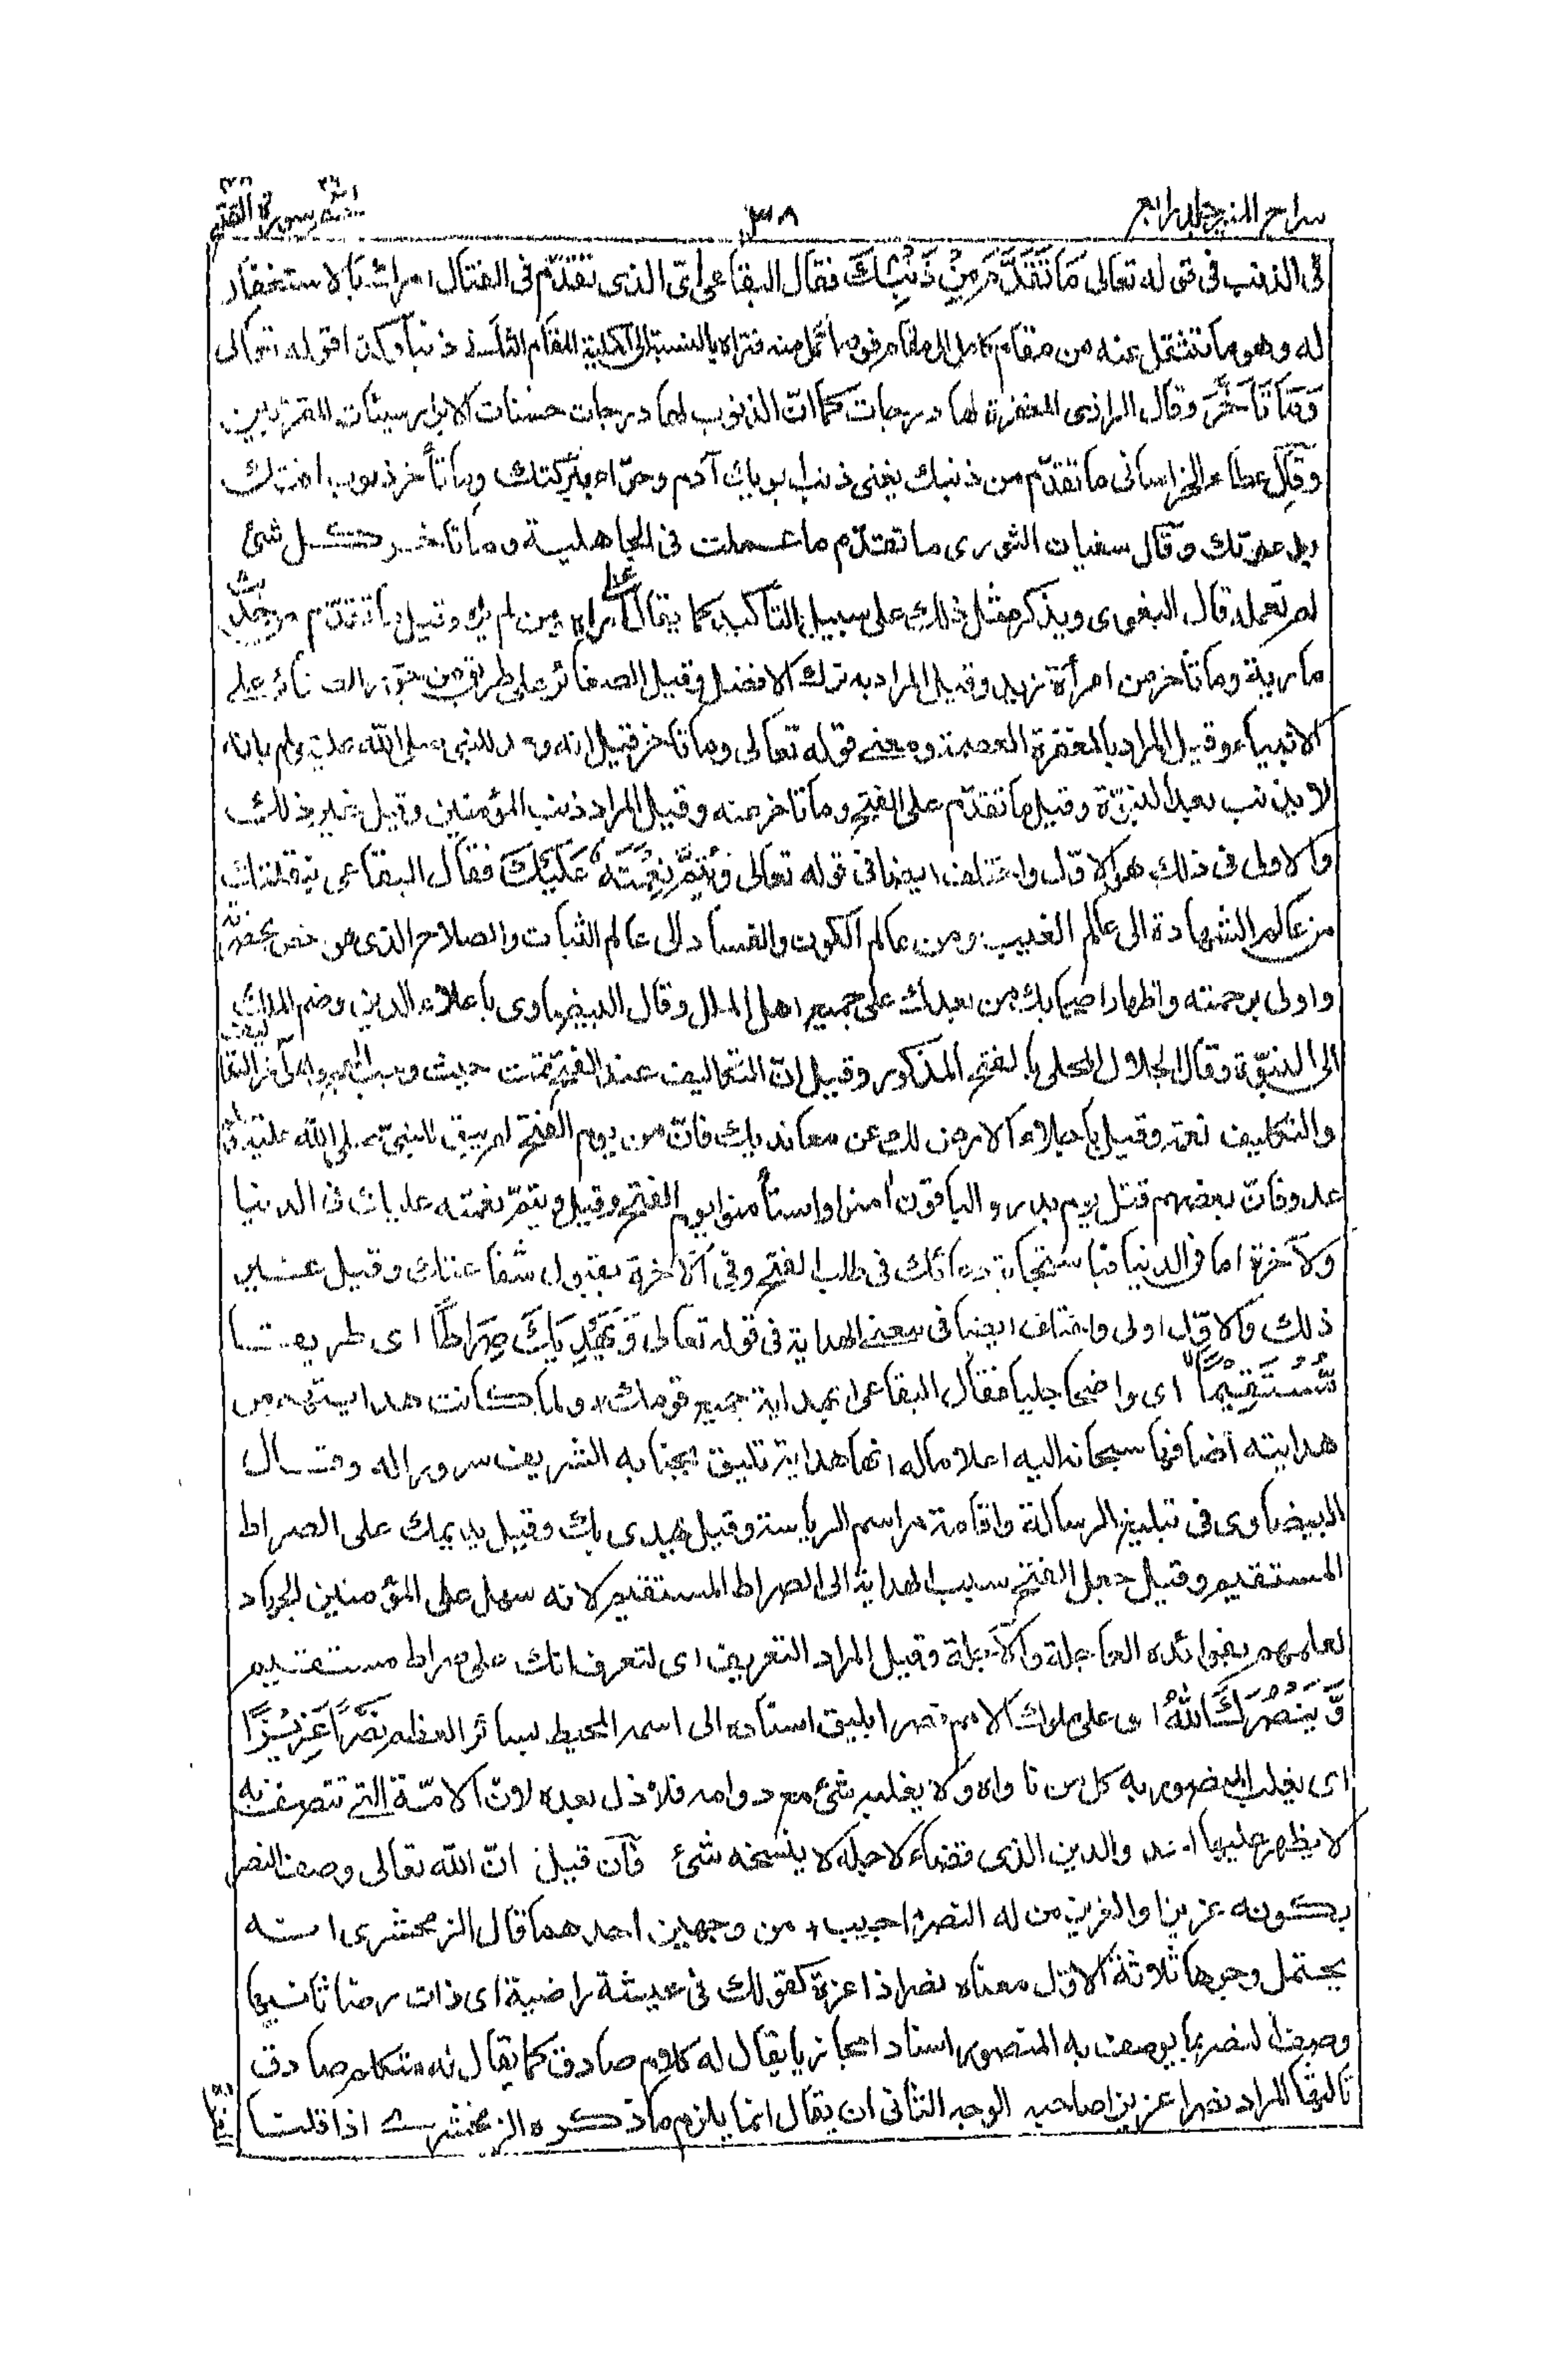 سراج المنير جلد رابع
٣٨
سورة الفتح
فى الذنب فى قوله تعالى مَا تَقَدَّمَ مِنْ ذَنْبِكَ فقال البقاعى اى الذى تقدّم فى القتال امرك بالاستغفار
له وهو ما تنتقل عنه من مقام كامل الى مقام فوقه اكمل منه فتراه بالنسبة الى اكملية المقام الثانى ذنبا وكذا قوله تعالى
وَمَا تَأَخَّرَ وقال الرازى المغفرة لها درجات كما انّ الذنوب لها درجات حسنات الابرار سيئات المقربين
وقال عطاء الخراسانى ما تقدّم من ذنبك يعنى ذنب ابويك آدم وحوّاء ببركتك وما تأخر ذنوب امتك
بدعوتك وقال سفيان الثورى ما تقدّم ما عملت فى الجاهلية وما تأخر كل شئ
لم تعمله قال البغوى ويذكر مثل ذلك على سبيل التأكيد كما يقال اعط من رآه ومن لم يره وقيل ما تقدّم من حديث
مارية وما تأخر من امرأة زيد وقيل المراد به ترك الافضل وقيل الصغائر على طريق من جوّز الصغائر على
الانبياء وقيل المراد بالمغفرة العصمة ومعنى قوله تعالى وما تأخر قيل انه وعد للنبى صلى الله عليه وسلم بانه
لا يذنب بعد النبوّة وقيل ما تقدّم على الفتح وما تأخر عنه وقيل المراد ذنب المؤمنين وقيل غير ذلك
والاولى فى ذلك هو الاوّل واختلف ايضا فى قوله تعالى وَيُتِمَّ نِعْمَتَهُ عَلَيْكَ فقال البقاعى بنقلتك
من عالم الشهادة الى عالم الغيب ومن عالم الكون والفساد الى عالم الثبات والصلاح الذى هو اخص بحضرته
واولى برحمته واظهار اصحابك من بعدك على جميع اهل الملل وقال البيضاوى باعلاء الدين وضم الملك
الى النبوّة وقال الجلال المحلى بالفتح المذكور وقيل انّ التكاليف عند الفتح تمت حيث وجب الحج وهو آخر التكاليف
والتكليف نعمة وقيل باخلاء الارض لك عن معانديك فانّ من يوم الفتح لم يبق للنبىّ صلى الله عليه وسلم
عدوّ فانّ بعضهم قتل يوم بدر والباقون آمنوا واستأمنوا يوم الفتح وقيل ويتمّ نعمته عليك فى الدنيا
والآخرة اما فى الدنيا فباستجابة دعائك فى طلب الفتح وفى الآخرة بقبول شفاعتك وقيل غير
ذلك والاوّل اولى واختلف ايضا فى معنى الهداية فى قوله تعالى وَيَهْدِيَكَ صِرَاطًا اى طريقا
مُّسْتَقِيْمًا اى واضحا جليا فقال البقاعى اى بهداية جميع قومك ولما كانت هدايتهم من
هدايته اضافها سبحانه اليه اعلاما له انها هداية تليق بجنابه الشريف سرورا له وقال
البيضاوى فى تبليغ الرسالة واقامة مراسم الرياسة وقيل يهدى بك وقيل يديمك على الصراط
المستقيم وقيل جعل الفتح سبب الهداية الى الصراط المستقيم لانه سهل على المؤمنين الجهاد
لعلمهم بفوائده العاجلة والآجلة وقيل المراد التعريف اى لتعرف انك على صراط مستقيم
وَّيَنْصُرَكَ اللهُ اى على ملوك الامم نصرا يليق اسناده الى اسمه المحيط بسائر العظم نَصْرًا عَزِيْزًا
اى يغلب المنصور به كل من ناواه ولا يغلبه شئ مع دوامه فلا ذل بعده لانّ الامّة التى تتصف به
لا يظهر عليها احد والدين الذى قضاه لاجله لا ينسخه شئ فان قيل انّ الله تعالى وصف النصر
بكونه عزيزا والعزيز من له النصر اجيب من وجهين احدهما قال الزمخشرى انه
يحتمل وجوها ثلاثة الاوّل معناه نصرا ذا عزة كقولك فى عيشة راضية اى ذات رضا ثانيها
وصف النصر بما يوصف به المنصور اسنادا مجازيا يقال له كلام صادق كما يقال له متكلم صادق
ثالثها المراد نصرا عزيزا صاحبه الوجه الثانى ان يقال انما يلزم ما ذكره الزمخشرى اذا قلنا